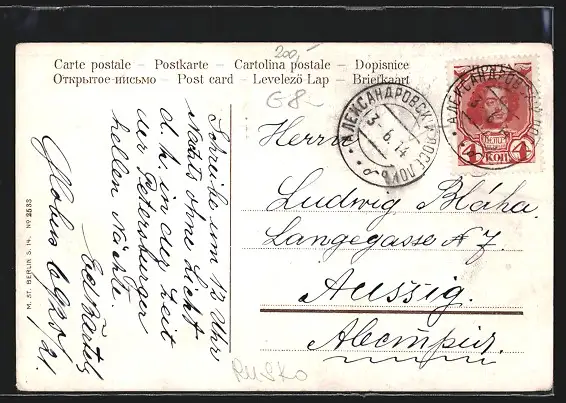 Carte postale – Postkarte – Cartolina postale – Dopisnice
Открытое письмо – Post card – Levelező Lap – Briefkaart
200,-
G8-
Schreibe um 12 Uhr
Nachts ohne Licht
d. h. in der Zeit
der Petersburger
hellen Nächte.
Globus
21.
M. ST. BERLIN S. 14. No 2533
АЛЕКСАНДРОВСК
3 6 14
4 КОП 4
Herrn
Ludwig Bláha.
Langegasse N 7.
Aussig.
Австрія.
RUSKO